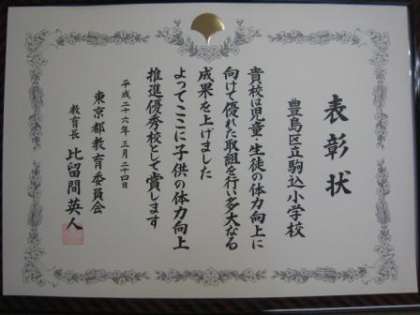 表彰状
豊島区立駒込小学校
貴校は児童・生徒の体力向上に
向けて優れた取組を行い多大なる
成果を上げました
よってここに子供の体力向上
推進優秀校として賞します
平成二十六年三月二十四日
東京都教育委員会
教育長 比留間英人